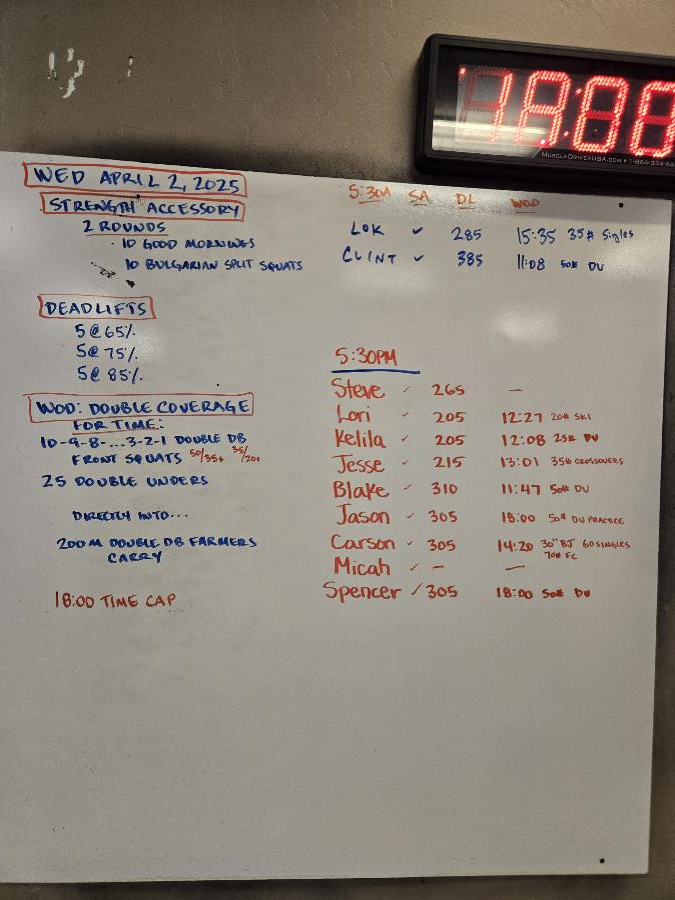 18:00
MuscleDriverUSA.com
WED APRIL 2, 2025
STRENGTH ACCESSORY
2 ROUNDS
· 10 GOOD MORNINGS
10 BULGARIAN SPLIT SQUATS
DEADLIFTS
5@65%
5@75%
5@85%
WOD: DOUBLE COVERAGE
FOR TIME:
10-9-8-...3-2-1 DOUBLE DB
FRONT SQUATS 50/35# 35/20#
25 DOUBLE UNDERS
DIRECTLY INTO...
200M DOUBLE DB FARMERS
CARRY
18:00 TIME CAP
5:30A SA DL WOD
LOK ✓ 285 15:35 35# Singles
CLINT ✓ 385 11:08 50# DU
5:30PM
Steve ✓ 265 —
Lori ✓ 205 12:27 20# SKI
Kelila ✓ 205 12:08 25# DU
Jesse ✓ 215 13:01 35# CROSSOVERS
Blake ✓ 310 11:47 50# DU
Jason ✓ 305 18:00 50# DU PRACTICE
Carson ✓ 305 14:20 30" BJ 60 SINGLES
70# FC
Micah ✓ — —
Spencer ✓ 305 18:00 50# DU